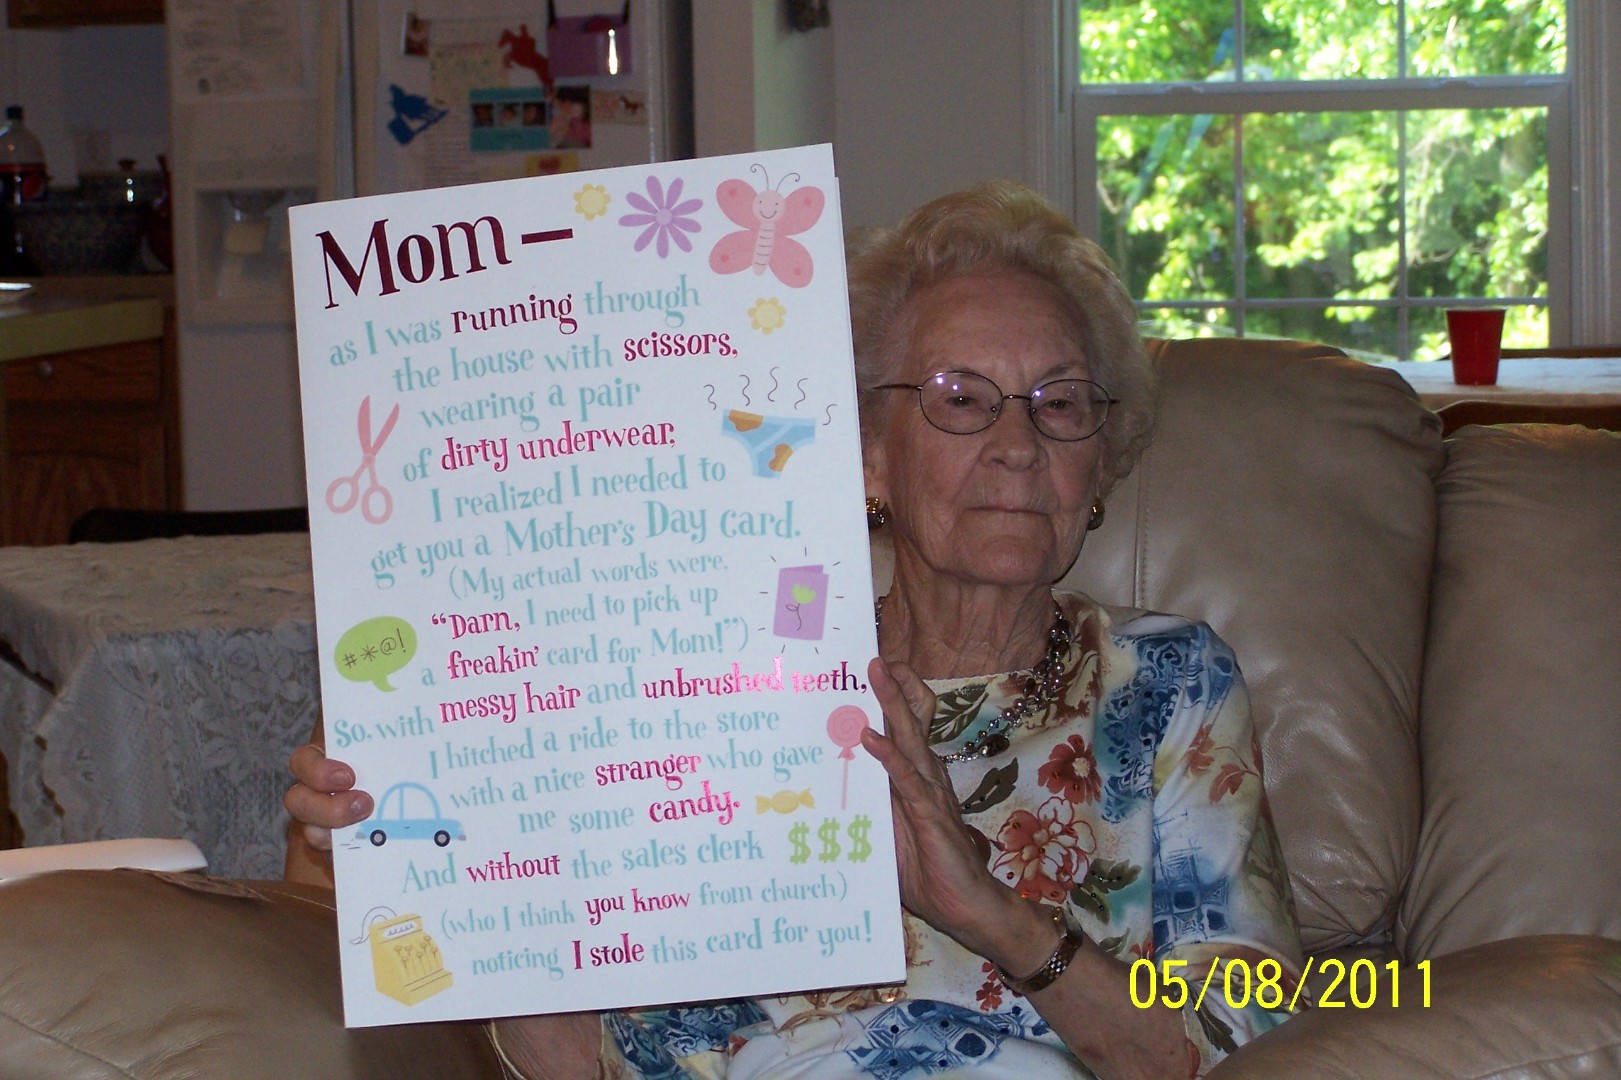 Mom –
as I was running through
the house with scissors,
wearing a pair
of dirty underwear,
I realized I needed to
get you a Mother's Day card.
(My actual words were,
"Darn, I need to pick up
a freakin' card for Mom!")
#*@!
So, with messy hair and unbrushed teeth,
I hitched a ride to the store
with a nice stranger who gave
me some candy.
And without the sales clerk
$$$
(who I think you know from church)
noticing I stole this card for you!
05/08/2011